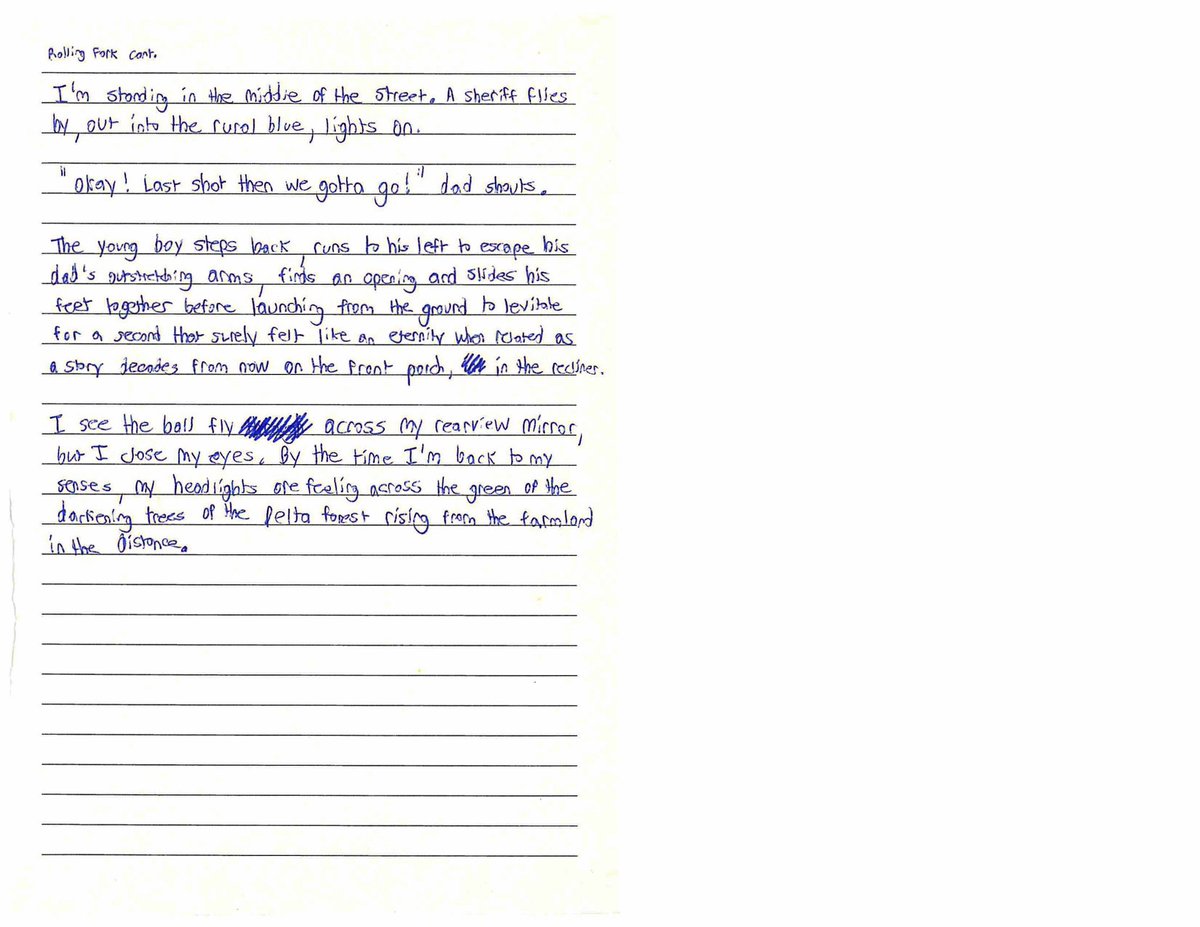 Rolling Fork cont.
I'm standing in the middle of the street. A sheriff flies
by, out into the rural blue, lights on.
"Okay! Last shot then we gotta go!" dad shouts.
The young boy steps back, runs to his left to escape his
dad's outstretching arms, finds an opening and slides his
feet together before launching from the ground to levitate
for a second that surely felt like an eternity when related as
a story decades from now on the front porch, in the recliner.
I see the ball fly across my rearview mirror,
but I close my eyes. By the time I'm back to my
senses, my headlights are feeling across the green of the
darkening trees of the Delta forest rising from the farmland
in the distance.